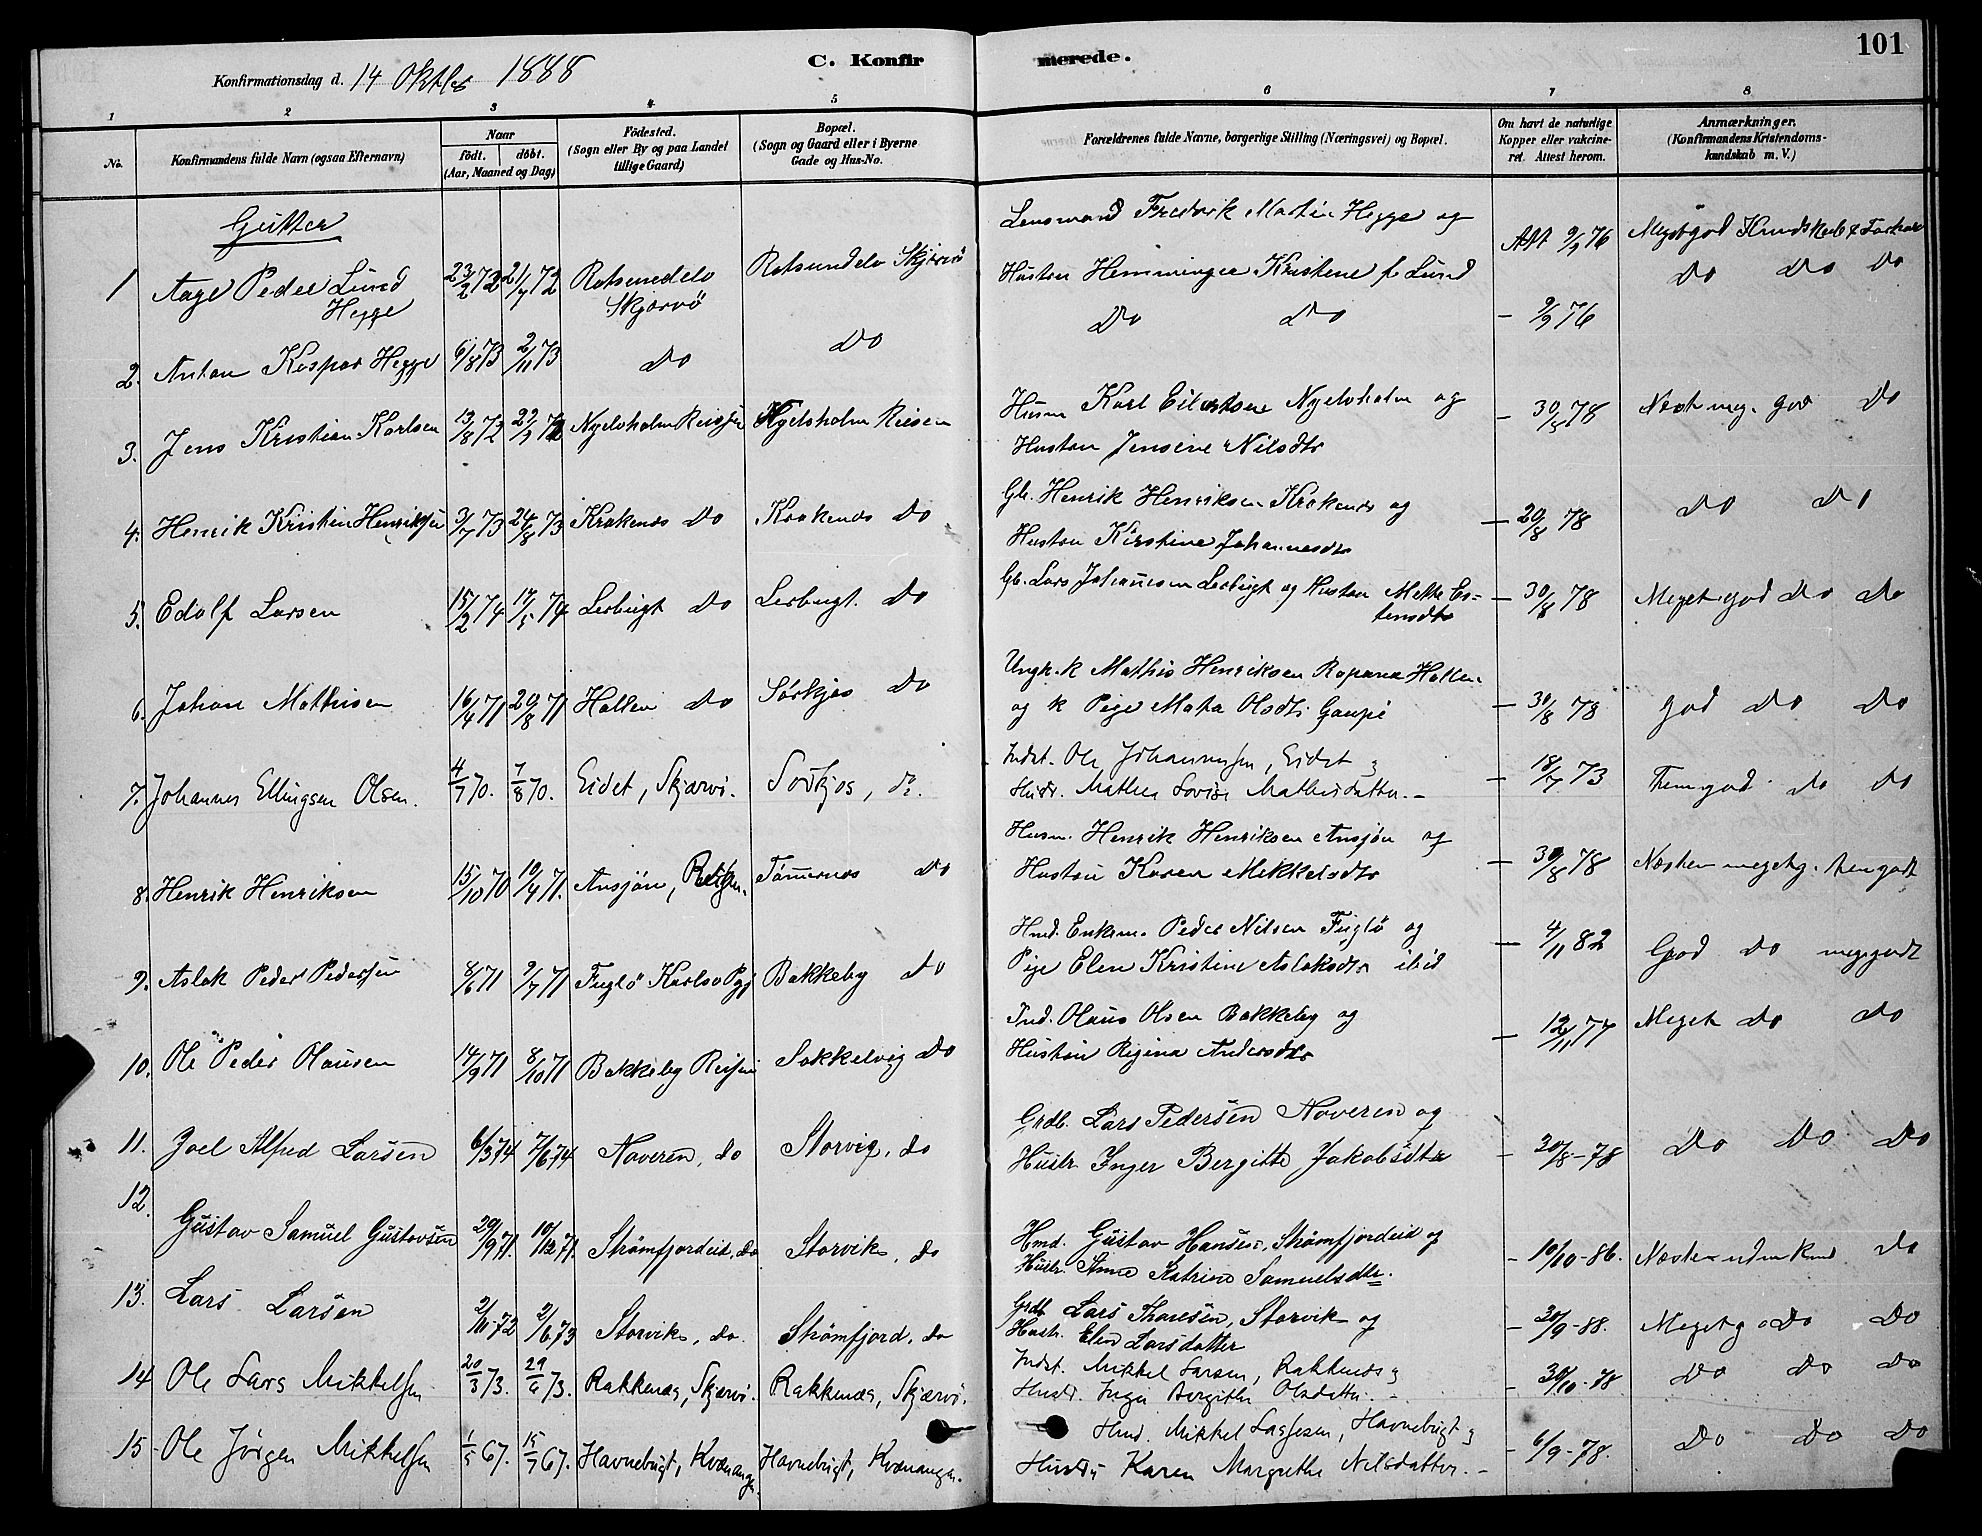 101
C. Konfirmerede.
Konfirmationsdag d. 14 Oktbr 1888
1 2 3 4 5 6 7 8
No.
Konfirmandens fulde Navn (ogsaa Efternavn)
Naar
födt. döbt.
(Aar, Maaned og Dag)
Födested.
(Sogn eller By og paa Landet
tillige Gaard)
Bopæl.
(Sogn og Gaard eller i Byerne
Gade og Hus-No.
Forældrenes fulde Navne, borgerlige Stilling (Næringsvei) og Bopæl.
Om havt de naturlige
Kopper eller vakcine-
ret. Attest herom.
Anmærkninger.
(Konfirmandens Kristendoms-
kundskab m. V.)
Gutter
1 Aage Peder Lund Hegge 23/2 72 21/7 72 Rotsundelv Skjærvö Rotsundelv Skjærvö
Lensmand Fredrik Martin Hegge og
Hustru Hemmingee Kristine f. Lund
Att 9/9 76 Megetgod Kundskab & Forhold
2. Anton Kaspar Hegge 6/8 73 2/11 73 do do
do do - 9/9 76 do do do
3. Jens Kristian Karlsen 13/8 72 22/9 72 Nyelvholm Reisen Nyelsholm Reisen
Husm Karl Eilertsen Nyelvholm og
Hustru Jensine Nilsdtr
- 30/8 78 Næst meg. god do
4. Henrik Kristin Henriksen 3/7 73 24/8 73 Krakenæs do Krakenæs do
Gb. Henrik Henriksen Krakenæs og
Hustru Kirstine Johannesdtr
- 20/8 78 do do
5. Edolf Larsen 15/2 74 17/5 74 Lerbugt do Lerbugt. do
Gb. Lars Johannesen Lerbugt og Hustru Mette Es-
tensdtr
- 30/8 78 Meget god do do
6. Johan Mathisen 16/4 71 20/8 71 Hallen do Sørkjos do
Ungk. k Mathis Henriksen Ropana Hallen
og k Pige Mata Olsdtr Gaupe
- 30/8 78 god do do
7. Johannes Ellingsen Olsen. 4/7 70. 7/8 70. Eidet, Skjærvö. Sørkjos, do.
Indst. Ole Johannessen, Eidet &
Hustr. Mathea Lovise Mathisdatter. -
- 18/7 73 Temgod do do
8. Henrik Henriksen 15/10 70 10/4 71. Ansjøn, Reisen. Tømmernæs do
Husm. Henrik Henriksen Ansjøn og
Hustru Karen Mikkelsdtr
- 30/8 78 Næsten megetg. temgodt
9. Aslak Peder Pedersen 8/6 71 9/7 71 Fuglö Karlsø Pgj Bakkeby do
Hmd. Enkem. Peder Nilsen Fuglö og
Pige Elen Kristine Aslaksdtr ibid
- 4/11 82 God do meggodt
10. Ole Peder Olausen 14/9 71 8/10 71 Bakkeby Reisen Sokkelvig do
Ind. Olaus Olsen Bakkeby og
Hustru Regina Andersdtr
- 12/11 77 Meget do do
11. Joel Alfred Larsen 6/3 74 7/6 74 Naveren, do Storvig, do
Grdb. Lars Pedersen Naveren og
Hustr. Inger Bergitte Jakobsdtr
- 30/8 - 78 do do do
12. Gustav Samuel Gustavsen 29/9 71. 10/12 71. Strømfjordeid, do Storvik, do
Hmd. Gustav Hansen, Strømfjordeid og
Hustr. Anne Katrine Samuelsdtr.
- 10/10 - 86. Næsten uden Kund do
13. Lars Larsen 2/11 72 2/6 73 Storvik, do. Strømfjord, do
Grdb Lars Tharesen, Storvik og
Hustr. Elen Larsdatter
- 30/9 - 88. Meget g do do
14 Ole Lars Mikkelsen 20/3 73. 29/6 73. Rakkenæs, Skjærvö. Rakkenæs, Skjærvö.
Indst. Mikkel Larsen, Rakkenæs &
Hustr. Inger Bergithe Olsdatter. -
- 30/10 - 78 do do do
15 Ole Jørgen Mikkelsen 1/5 67. 15/7 67. Havnebugt, Kvænangen Havnebugt, Kvænangen.
Hmd. Mikkel Lassesen, Havnebugt &
Hustru Karen Margrethe Nilsdatter. -
- 6/9 - 78. do do do